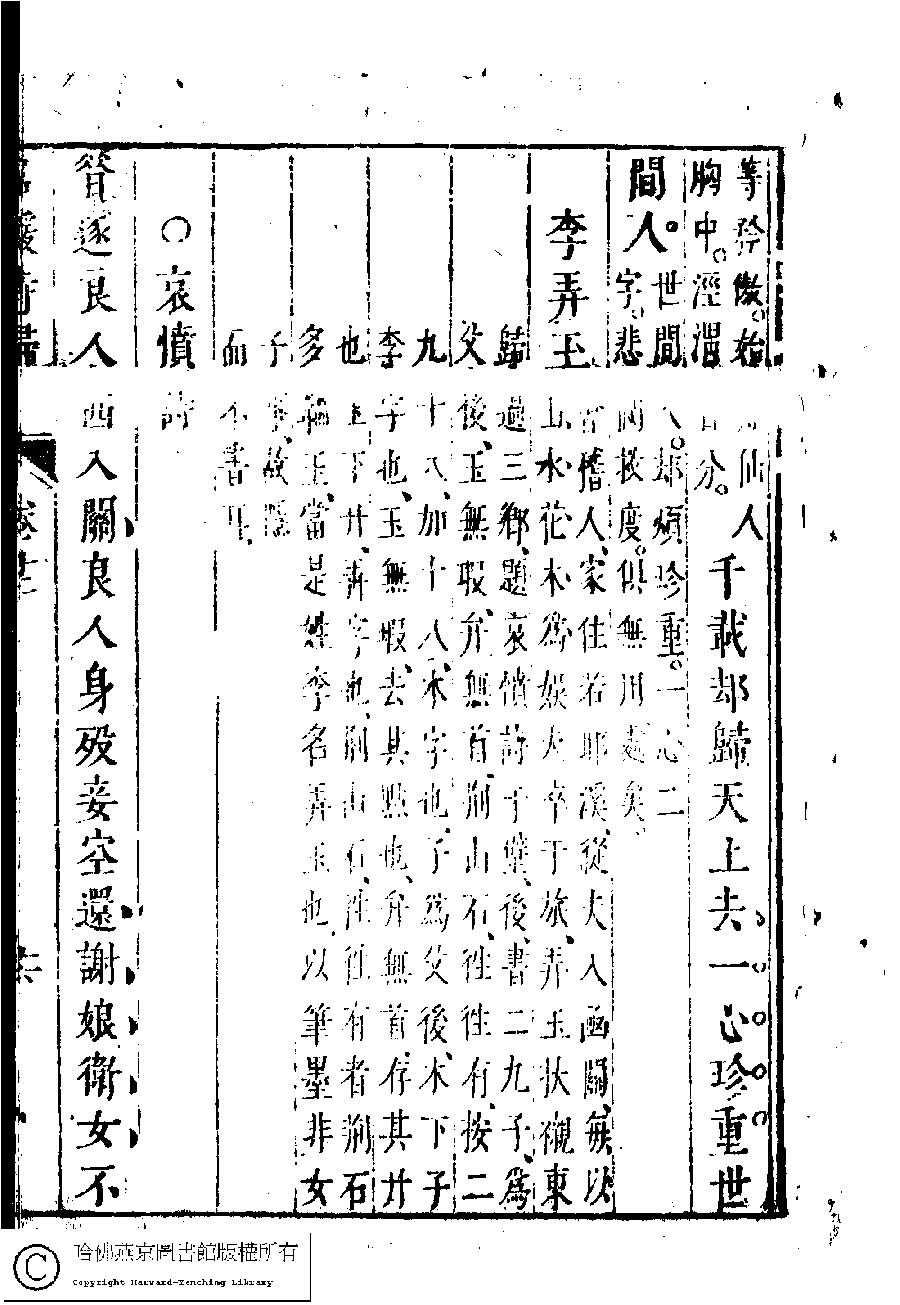 等矜傲。始仙人
胸中。涇渭分。
千載却歸天上去一心珍重世
間人。
世間人。却煩珍重。一心二
字。悲憫救度。俱無用處矣。
李弄玉
稽人、家住若耶溪、從夫入函關、每以
山水花木為娛夫卒于旅、弄玉扶櫬東
歸過三鄉、題哀憤詩于壁、後書二九子、為
父後、玉無瑕、弁無首、荊山石、往往有、按二
九十八、加十八、木字也、子為父後、木下子
李字也、玉無瑕、去其點也、弁無首、存其廾
也王下廾、弄字也、荊山石、往往有者荊石
多韞玉、當是姓李名弄玉也、以筆墨非女
子事、故隱
而不書耳、
○哀憤詩
昔逐良人西入關良人身歿妾空還謝娘衛女不
名媛詩歸 卷十三 六
哈佛燕京圖書館版權所有
Copyright Harvard-Yenching Library